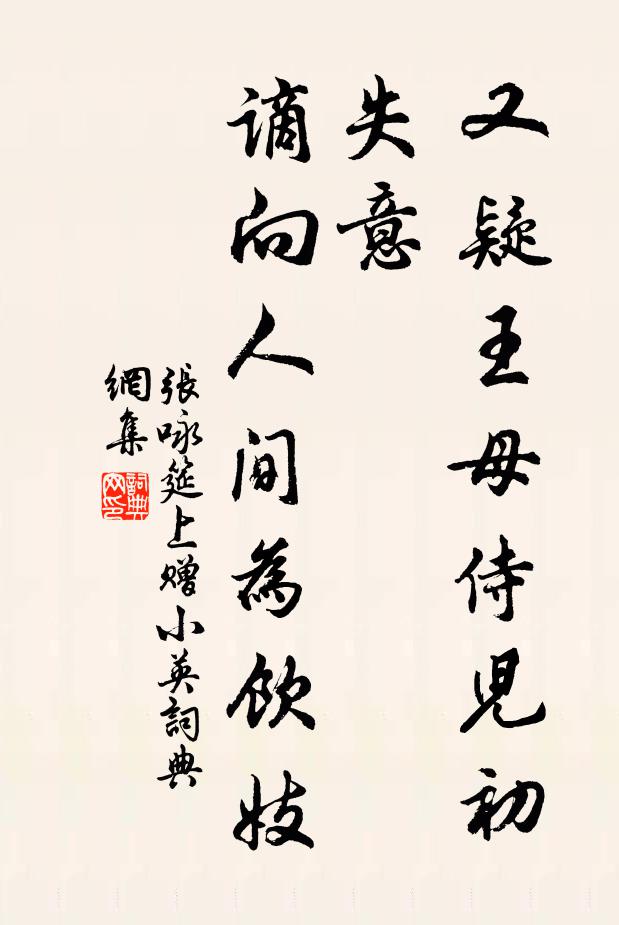 又疑王母侍兒初
失意
謫向人間為飲妓
張咏筵上赠小英詞典
網集
詞典
网印